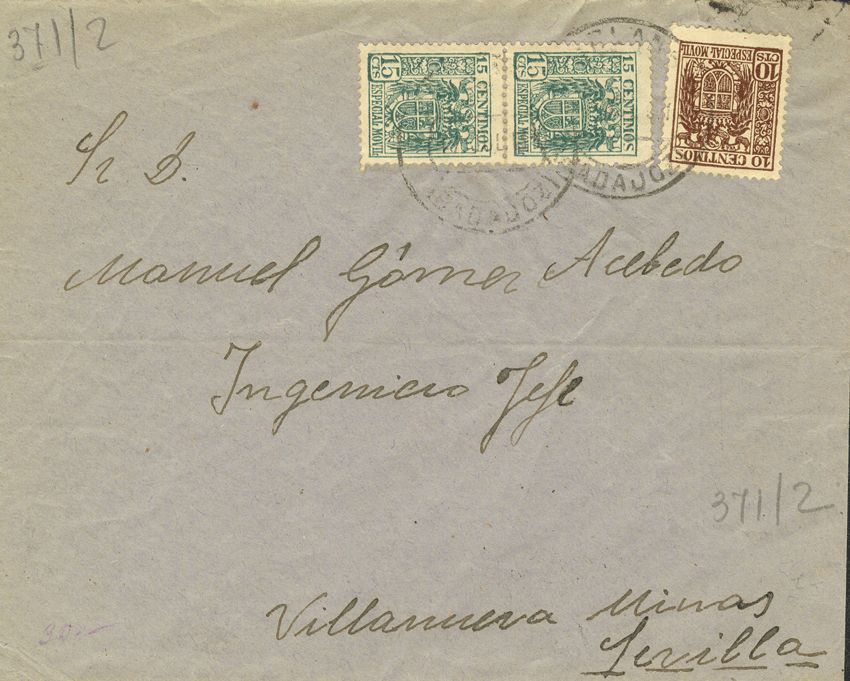 371/2
15 CTS
15 CENTIMOS
ESPECIAL MOVIL
15 CTS
15 CENTIMOS
ESPECIAL MOVIL
10 CTS
ESPECIAL MOVIL
10 CENTIMOS
(BADAJOZ)
BADAJOZ
Sr D.
Manuel Gómez Acebedo
Ingeniero Jefe
371/2
Villanueva Minas
Sevilla
30-